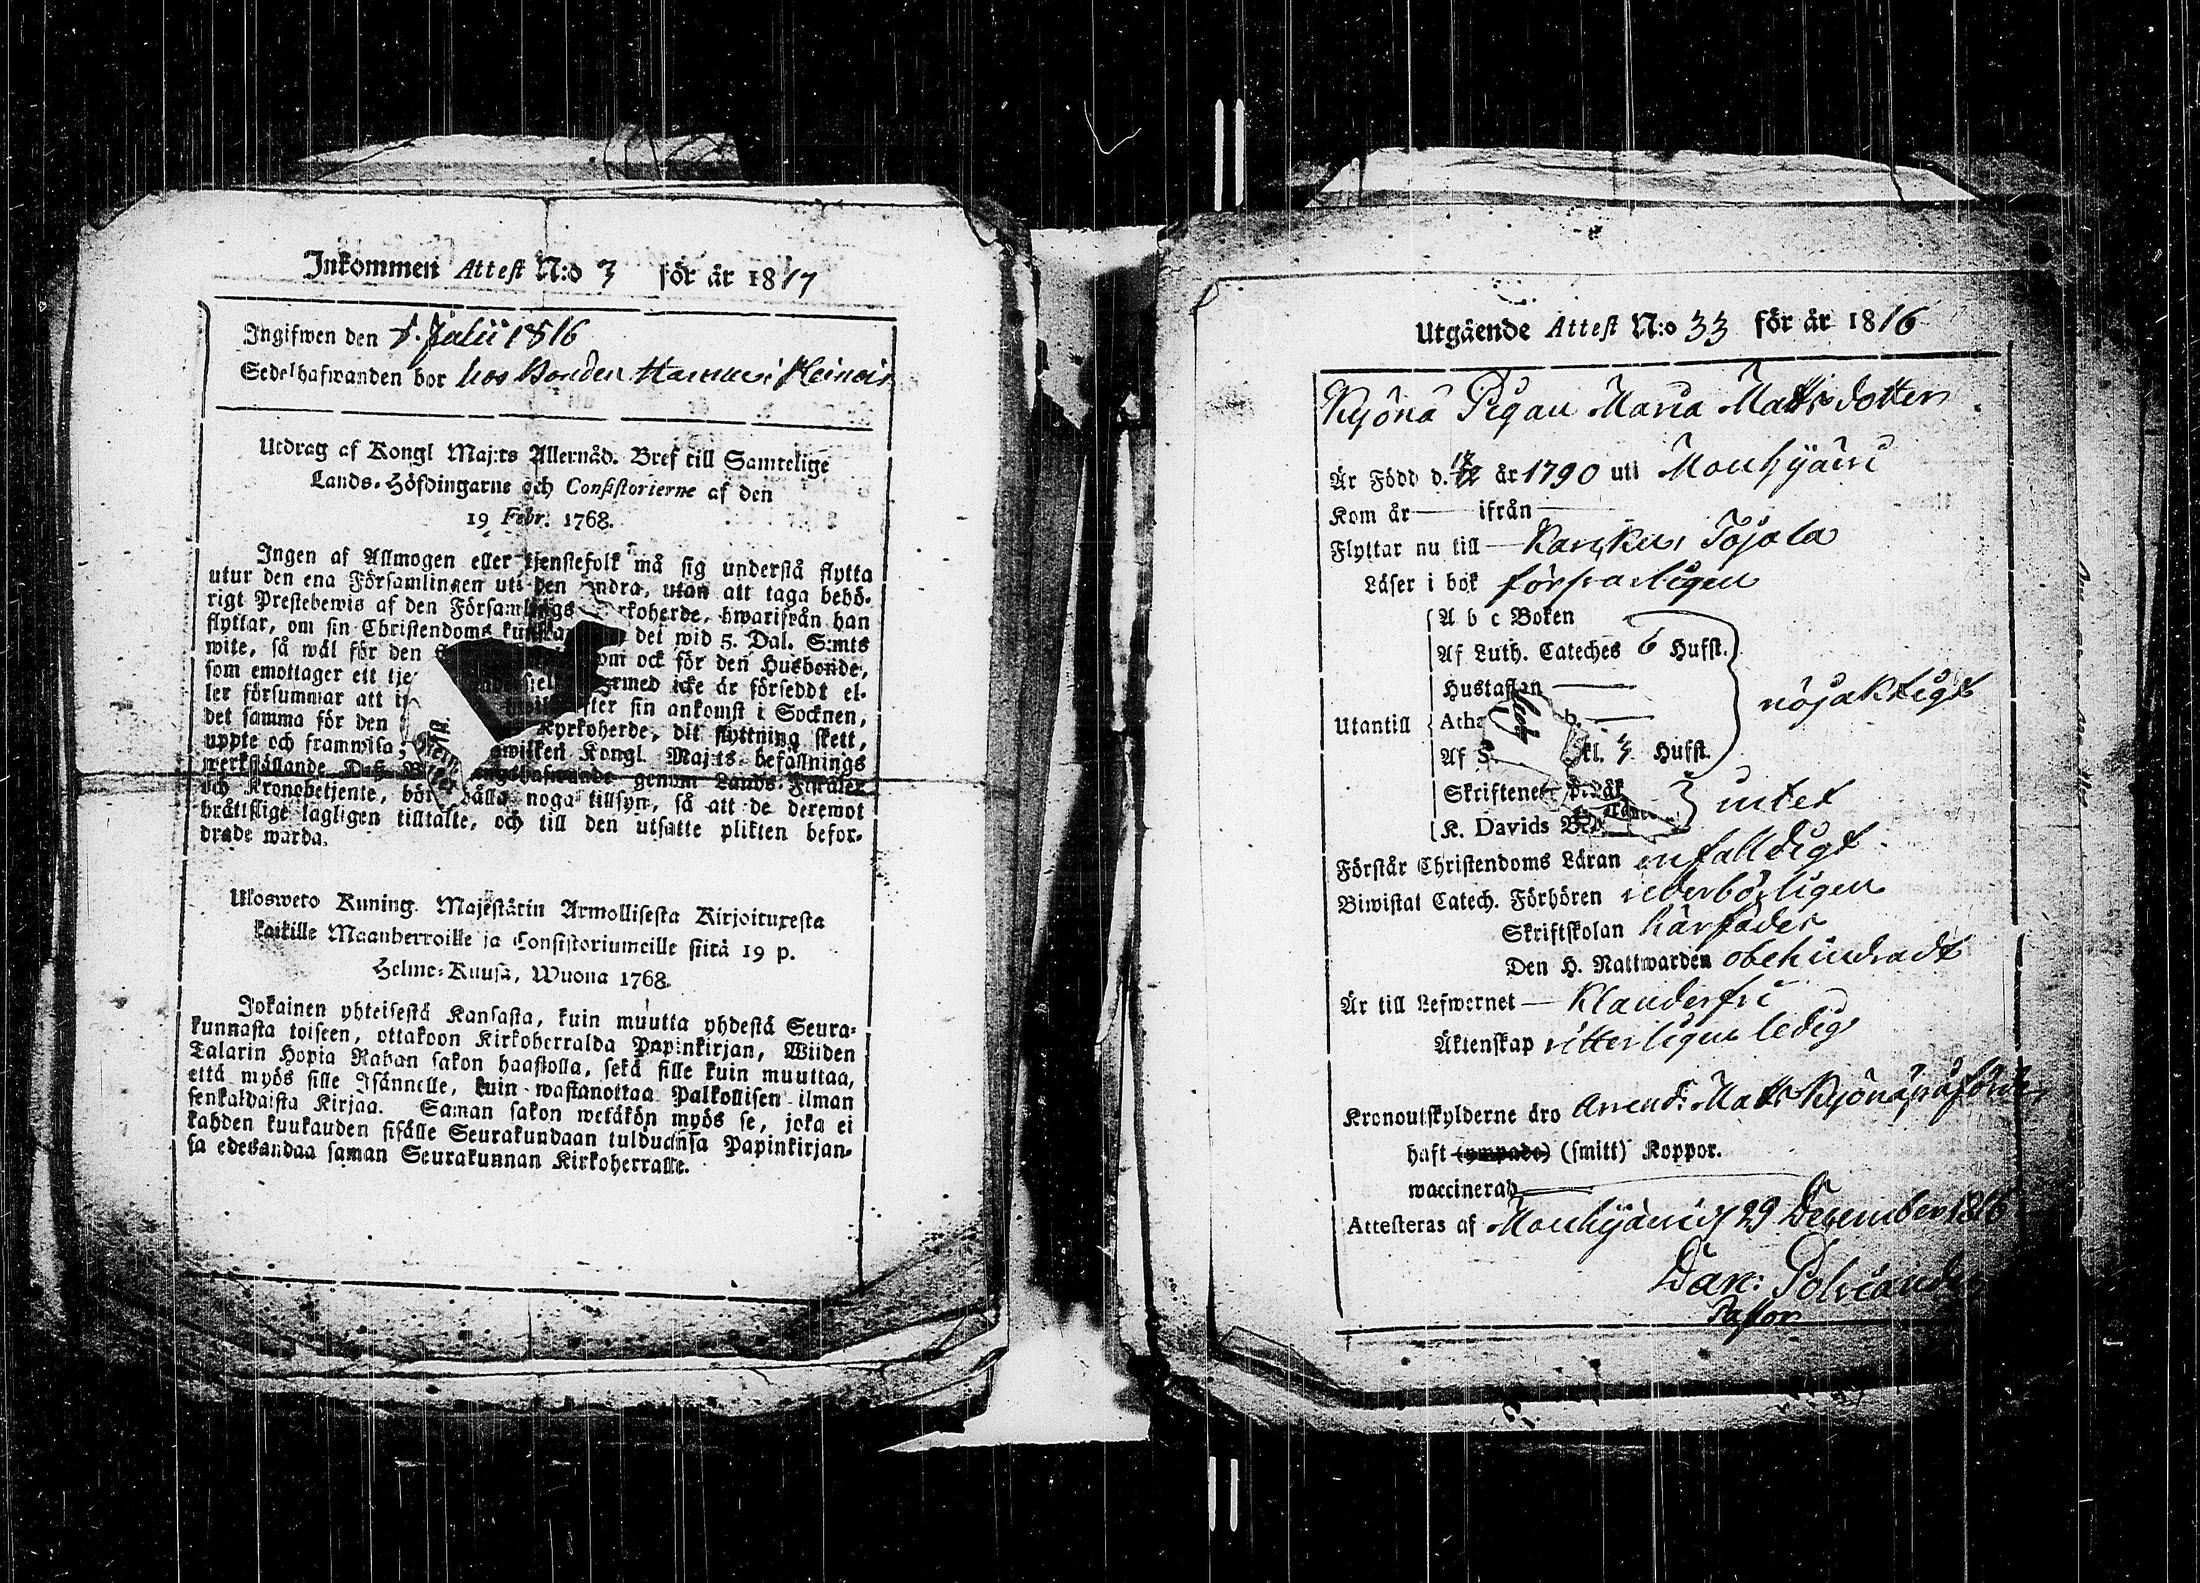 Inkommen Attest N:o 3 för år 1817
Ingifwen den Julii 1816
Sedelhafwanden bor hos Bonden i
Utdrag af Kongl Maj:ts Allernåd. Bref till Samtelige
Lands-Höfdingarne och Consistorierne af den
19 Febr. 1768.
Ingen af Allmogen eller tjenstefolk må sig understå flytta
utur den ena Församlingen uti den andra, utan att taga behö-
rigt Prestebewis af den Församlings rkoherde, hwarifrån han
flyttar, om sin Christendoms det wid 5. Dal. S:mts
wite, så wäl för den om ock för den Husbonde,
som emottager ett tje ermed icke är försedt el-
ler försummar att efter sin ankomst i Socknen,
det samma för den Kyrkoherde, dit flyttning skett,
uppte och framwisa; hwilken Kongl. Maj:ts befallnings
werkställande genom Lands-Fiskaler
och Kronobetjente, bör hålla noga tillsyn, så att de deremot
brättslige lagligen tilltalte, och till den utsatte plikten befor-
drade warda.
Ulosweto Kuning. Majestätin Armollisesta Kirjoituxesta
kaikille Maanherroille ja Consistoriumeille siitä 19 p.
Helme-Kuusa, Wuona 1768.
Jokainen yhteisestä Kansasta, kuin muutta yhdestä Seura-
kunnasta toiseen, ottakoon Kirkoherralda Papinkirjan, Wiiden
Talarin Hopia Rahan sakon haastolla, sekä sille kuin muuttaa,
että myös sille Isännelle, kuin wastanottaa Palkollisen ilman
senkaldaista Kirjaa. Saman sakon wetäkön myös se, joka ei
kahden kuukauden sisälle Seurakundaan tulduansa Papinkirjan-
sa edesandaa saman Seurakunnan Kirkoherralle.
Utgående Attest N:o 33 för år 1816
Kyönä Pigan Maria Matts dotter
Är Född d. 12 år 1790 uti Mouhijärvi
Kom år — ifrån —
Flyttar nu till — Karkku, Töjola
Läser i bok försvarligen
A b c Boken
Af Luth. Cateches 6 Hufst.
Hustaflan —
Utantill Atha —
Af S kl. 3 Hufst.
nöjaktigt
Skriftene
K. Davids
intet
Förstår Christendoms Läran enfalldigt
Biwistat Catech. Förhören wederbörligen
Skriftskolan härstädes
Den H. Nattwarden obehindradt
Är till Lefwernet — Klanderfri
Äktenskap ledig
Kronoutskylderne äro Matts Kyönä
haft (ympade) (smitt) Koppor.
waccinerad
Attesteras af Mouhijärvi d 29 December 1816
Dan: Polviander
Pastor